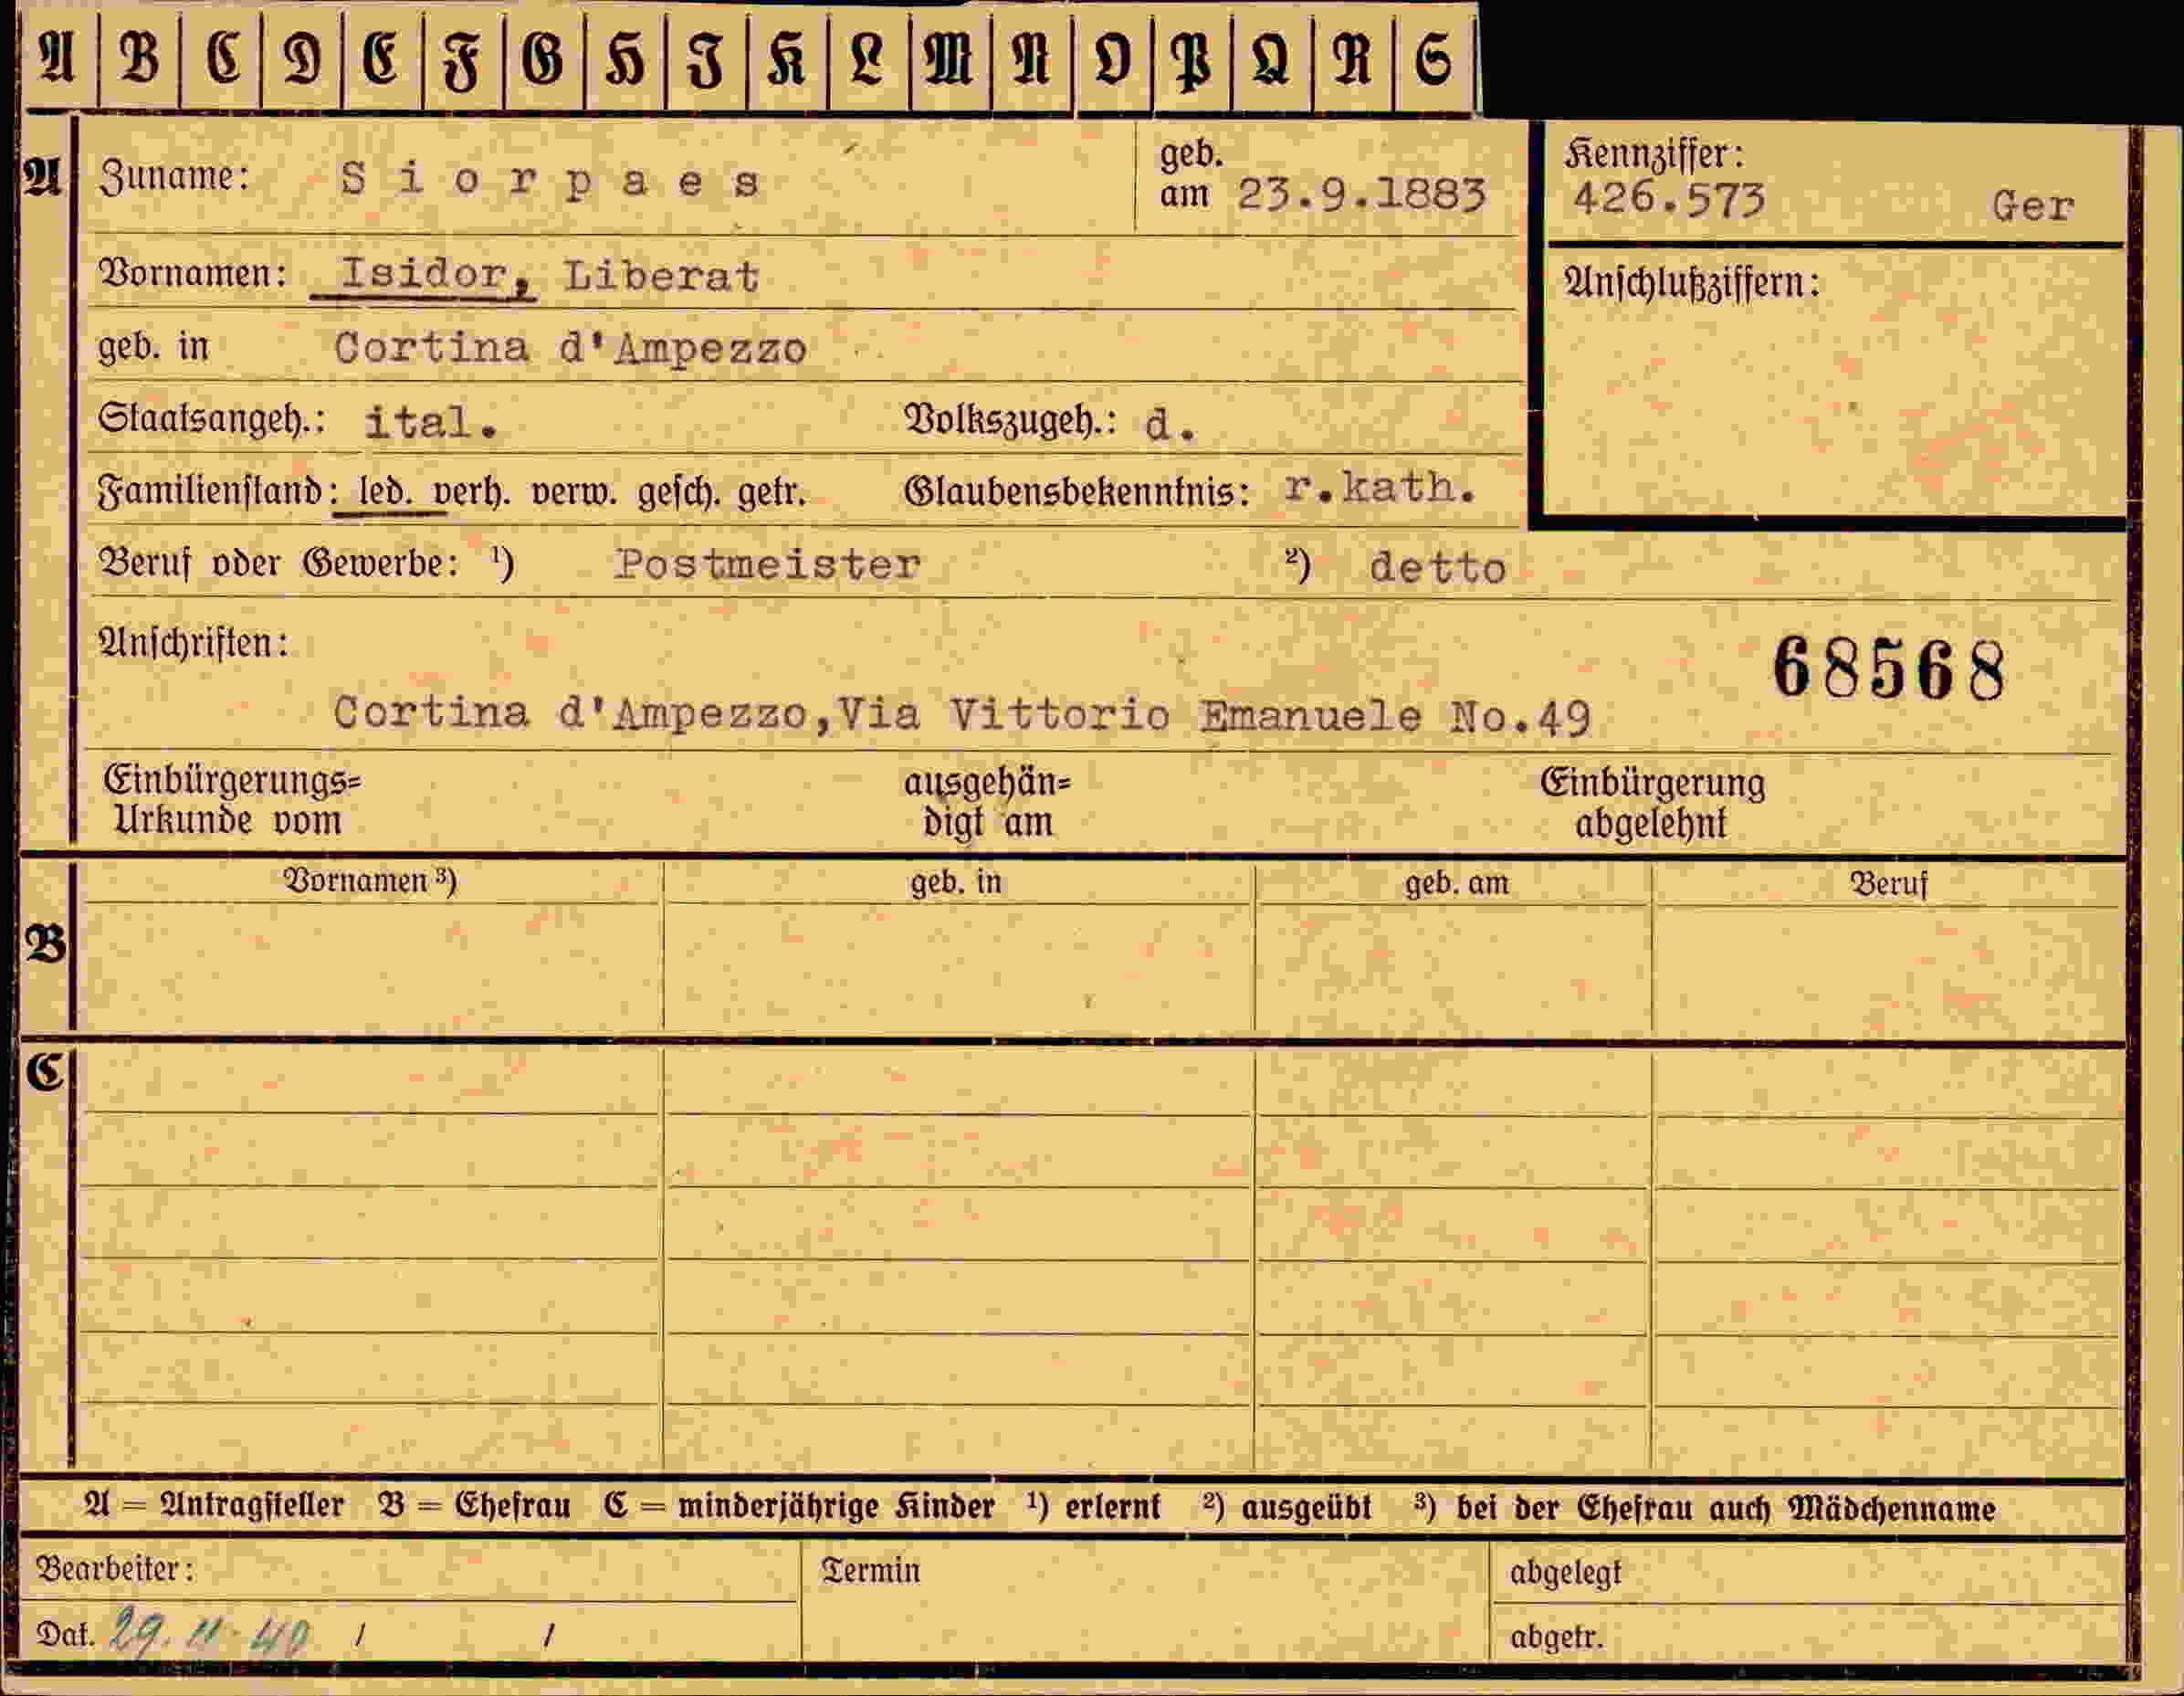 A B C D E F G H I K L M N O P Q R S
A Zuname: Siorpaes geb. am 23.9.1883 Kennziffer: 426.573 Ger
Vornamen: Isidor, Liberat Anschlußziffern:
geb. in Cortina d'Ampezzo
Staatsangeh.: ital. Volkszugeh.: d.
Familienstand: led. verh. verw. gesch. getr. Glaubensbekenntnis: r.kath.
Beruf oder Gewerbe: ¹) Postmeister ²) detto
Anschriften:
68568
Cortina d'Ampezzo,Via Vittorio Emanuele No.49
Einbürgerungs= ausgehän= Einbürgerung
Urkunde vom digt am abgelehnt
Vornamen ³) geb. in geb. am Beruf
B
C
A = Antragsteller B = Ehefrau C = minderjährige Kinder ¹) erlernt ²) ausgeübt ³) bei der Ehefrau auch Mädchenname
Bearbeiter: Termin abgelegt
Dat. 29. 11. 40 / / abgetr.